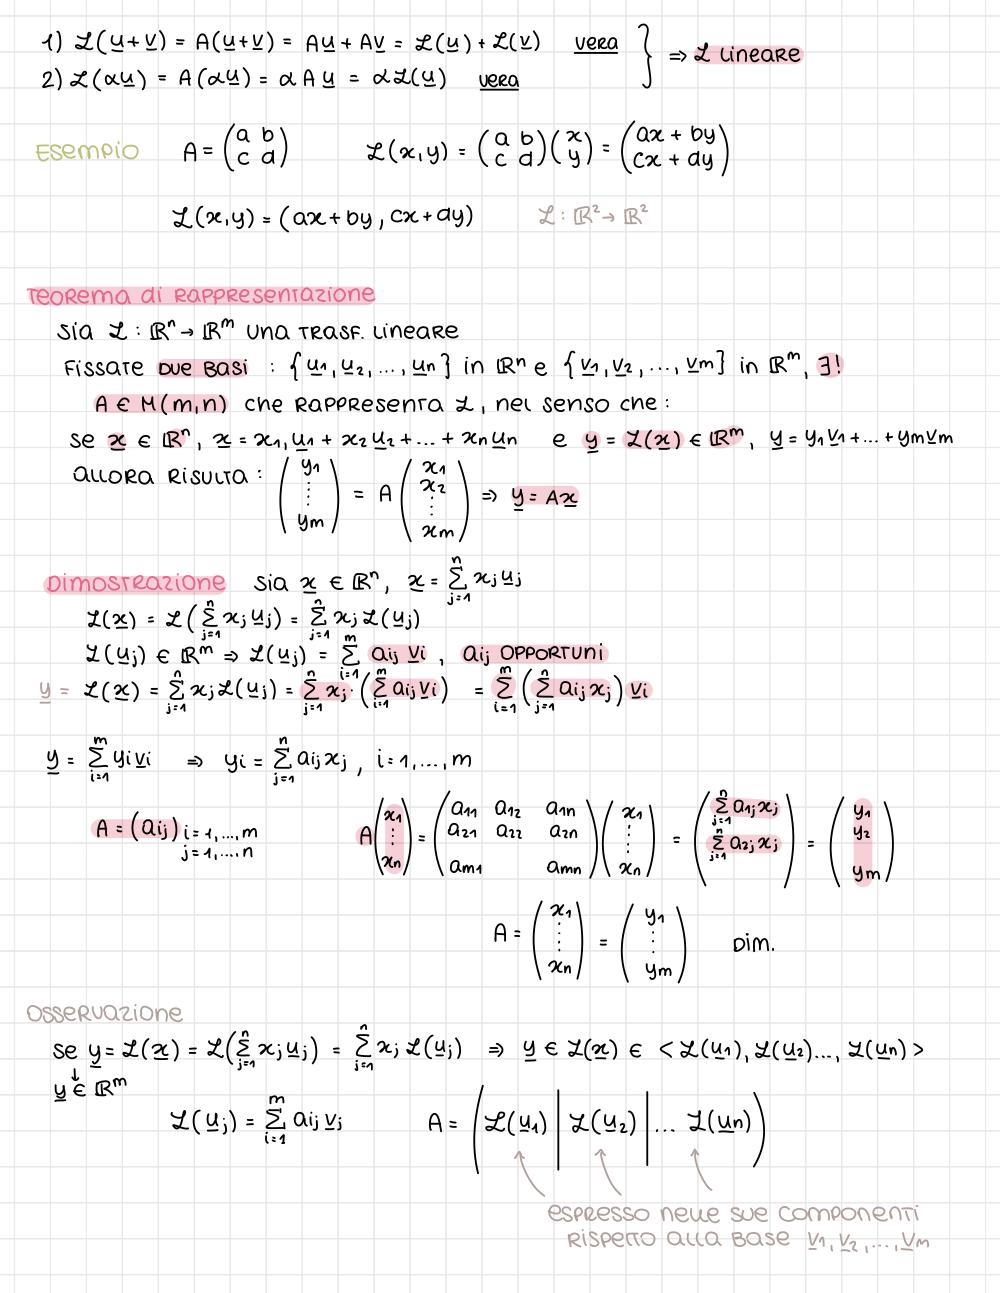 1) ℒ(u+v) = A(u+v) = Au + Av = ℒ(u) + ℒ(v) vera
2) ℒ(αu) = A(αu) = αAu = αℒ(u) vera } ⇒ ℒ lineare
Esempio A = (a b / c d) ℒ(x,y) = (a b / c d)(x / y) = (ax + by / cx + dy)
ℒ(x,y) = (ax+by, cx+dy) ℒ: ℝ² → ℝ²
Teorema di rappresentazione
Sia ℒ: ℝⁿ → ℝᵐ una trasf. lineare
Fissate due basi : {u1, u2, ..., un} in ℝⁿ e {v1, v2, ..., vm} in ℝᵐ, ∃!
A ∈ M(m,n) che rappresenta ℒ, nel senso che :
se x ∈ ℝⁿ, x = x1, u1 + x2 u2 + ... + xn un e y = ℒ(x) ∈ ℝᵐ, y = y1 v1 + ... + ym vm
allora risulta : (y1 ⋮ ym) = A (x1 x2 ⋮ xm) ⇒ y = Ax
Dimostrazione sia x ∈ ℝⁿ, x = Σ_{j=1}^{n} xj uj
ℒ(x) = ℒ(Σ_{j=1}^{n} xj uj) = Σ_{j=1}^{n} xj ℒ(uj)
ℒ(uj) ∈ ℝᵐ ⇒ ℒ(uj) = Σ_{i=1}^{m} aij vi , aij opportuni
y = ℒ(x) = Σ_{j=1}^{n} xj ℒ(uj) = Σ_{j=1}^{n} xj · (Σ_{i=1}^{m} aij vi) = Σ_{i=1}^{m} (Σ_{j=1}^{n} aij xj) vi
y = Σ_{i=1}^{m} yi vi ⇒ yi = Σ_{j=1}^{n} aij xj , i=1,...,m
A = (aij) i=1,...,m j=1,...,n A(x1 ⋮ xn) = (a11 a12 a1n / a21 a22 a2n / am1 amn)(x1 ⋮ xn) = (Σ_{j=1}^{n} a1j xj / Σ_{j=1}^{n} a2j xj) = (y1 y2 ym)
A = (x1 ⋮ xn) = (y1 ⋮ ym) Dim.
Osservazione
se y = ℒ(x) = ℒ(Σ_{j=1}^{n} xj uj) = Σ_{j=1}^{n} xj ℒ(uj) ⇒ y ∈ ℒ(x) ∈ < ℒ(u1), ℒ(u2)..., ℒ(un) >
↓
y ∈ ℝᵐ
ℒ(uj) = Σ_{i=1}^{m} aij vj A = (ℒ(u1) | ℒ(u2) | ... ℒ(un))
espresso nelle sue componenti
rispetto alla base v1, v2, ..., vm